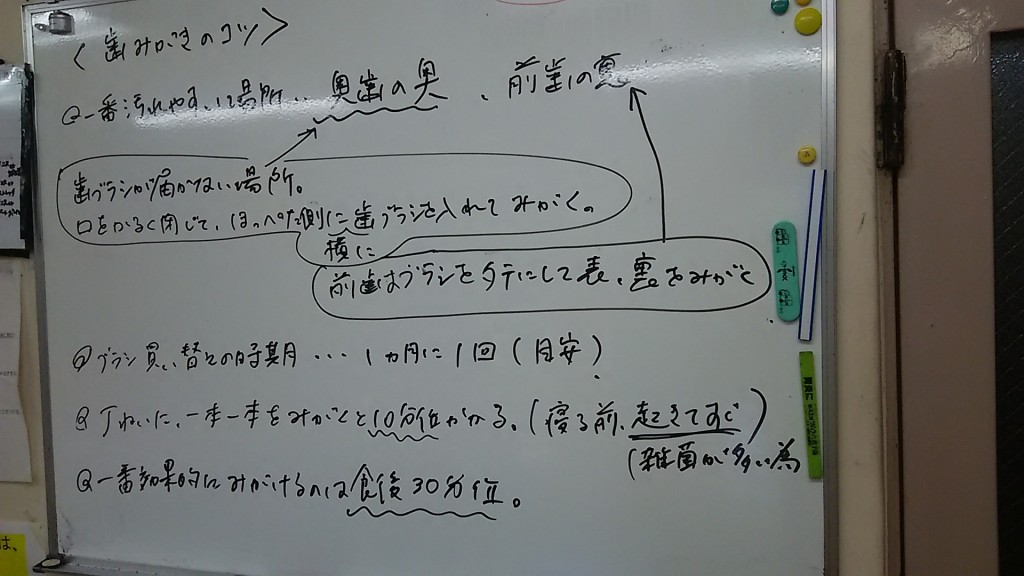 〈歯みがきのコツ〉
一番汚れやすい場所… 奥歯の奥、前歯の裏
歯ブラシが届かない場所。
口をかるく閉じて、ほっぺた側に歯ブラシを入れてみがく。
横に
前歯はブラシをタテにして表、裏をみがく
ブラシ買い替えの時期 … 1ヵ月に1回(目安)
丁ねいに、一本一本をみがくと10分位かかる。(寝る前、起きてすぐ)
(雑菌が多い為
一番効果的にみがけるのは食後30分位。
は、